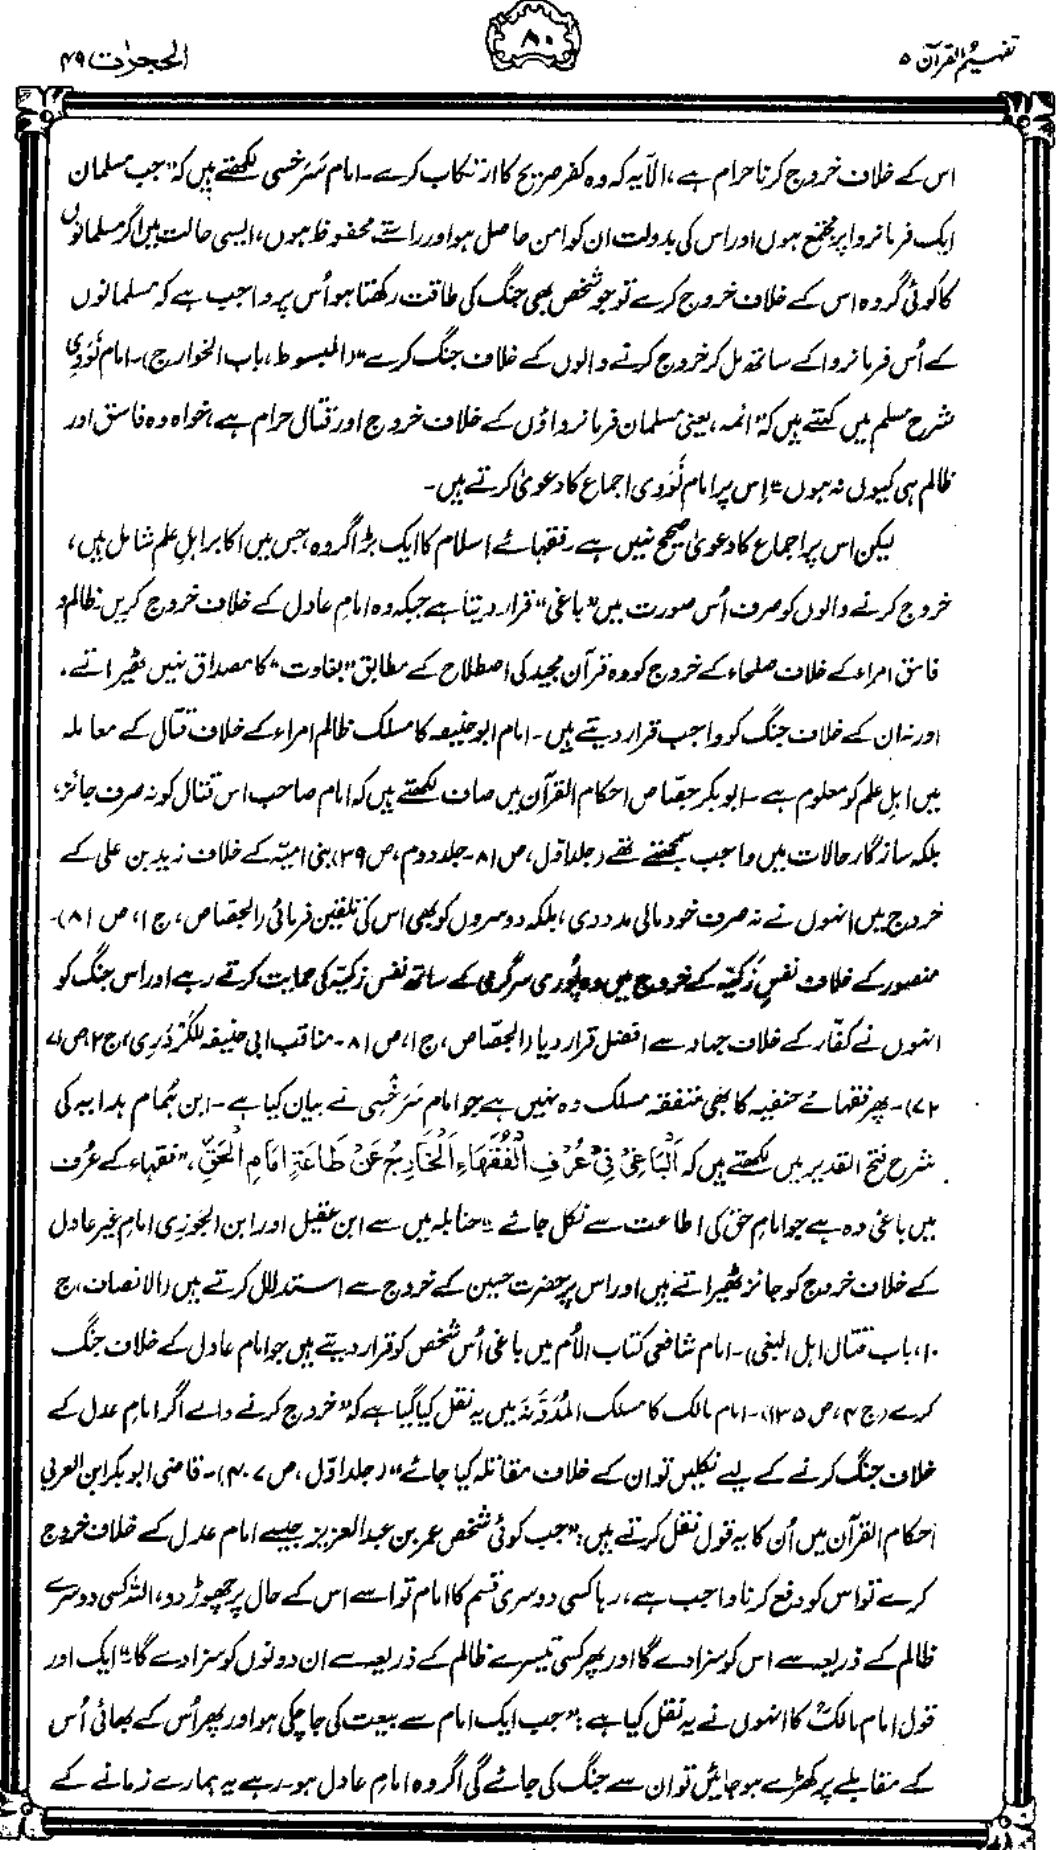 تفہیم القرآن ۵
۸۰
الحجرات ۴۹
اس کے خلاف خروج کرنا حرام ہے، الّا یہ کہ وہ کفر صریح کا ارتکاب کرے۔ امام سَرَخسی لکھتے ہیں کہ "جب مسلمان
ایک فرمانروا پر مجتمع ہوں اور اس کی بدولت ان کو امن حاصل ہو اور راستے محفوظ ہوں، ایسی حالت میں اگر مسلمانوں
کا کوئی گروہ اس کے خلاف خروج کرے تو جو شخص بھی جنگ کی طاقت رکھتا ہو اُس پر واجب ہے کہ مسلمانوں
کے اُس فرمانروا کے ساتھ مل کر خروج کرنے والوں کے خلاف جنگ کرے" (المبسوط، باب الخوارج)۔ امام نَوَوِی
شرح مسلم میں کہتے ہیں کہ "ائمہ، یعنی مسلمان فرمانرواؤں کے خلاف خروج اور قتال حرام ہے، خواہ وہ فاسق اور
ظالم ہی کیوں نہ ہوں" اِس پر امام نَوَوی اجماع کا دعویٰ کرتے ہیں۔
لیکن اس پر اجماع کا دعویٰ صحیح نہیں ہے۔ فقہائے اسلام کا ایک بڑا گروہ، جس میں اکابر اہلِ علم شامل ہیں،
خروج کرنے والوں کو صرف اُس صورت میں "باغی" قرار دیتا ہے جبکہ وہ امامِ عادل کے خلاف خروج کریں۔ ظالم و
فاسق امراء کے خلاف صلحاء کے خروج کو وہ قرآن مجید کی اصطلاح کے مطابق "بغاوت" کا مصداق نہیں ٹھیراتے،
اور نہ ان کے خلاف جنگ کو واجب قرار دیتے ہیں۔ امام ابو حنیفہ کا مسلک ظالم امراء کے خلاف قتال کے معاملہ
میں اہلِ علم کو معلوم ہے۔ ابوبکر جصّاص احکام القرآن میں صاف لکھتے ہیں کہ امام صاحب اس قتال کو نہ صرف جائز،
بلکہ سازگار حالات میں واجب سمجھتے تھے (جلد اوّل، ص ۸۱۔ جلد دوم، ص ۳۹) بنی امیّہ کے خلاف زید بن علی کے
خروج میں انہوں نے نہ صرف خود مالی مدد دی، بلکہ دوسروں کو بھی اس کی تلقین فرمائی (الجصّاص، ج ۱، ص ۸۱)۔
منصور کے خلاف نفسِ زَکیّہ کے خروج میں وہ پُوری سرگرمی کے ساتھ نفس زکیّہ کی حمایت کرتے رہے اور اس جنگ کو
انہوں نے کفّار کے خلاف جہاد سے افضل قرار دیا (الجصّاص، ج ۱، ص ۸۱۔ مناقب ابی حنیفہ للکَرْدَرِی، ج ۲، ص ۷۱،
۷۲)۔ پھر فقہائے حنفیہ کا بھی متفقہ مسلک وہ نہیں ہے جو امام سَرَخْسِی نے بیان کیا ہے۔ ابن ہُمام ہدایہ کی
شرح فتح القدیر میں لکھتے ہیں کہ اَلْبَاغِیْ فِیْ عُرْفِ الْفُقَهَاءِ اَلْخَارِجُ عَنْ طَاعَةِ اِمَامِ الْحَقِّ، "فقہاء کے عُرف
میں باغی وہ ہے جو امامِ حق کی اطاعت سے نکل جائے" حنابلہ میں سے ابن عقیل اور ابن الجوزی امامِ غیر عادل
کے خلاف خروج کو جائز ٹھیراتے ہیں اور اس پر حضرت حسین کے خروج سے استدلال کرتے ہیں (الانصاف، ج
۱۰، باب قتال اہل البغی)۔ امام شافعی کتاب الاُم میں باغی اُس شخص کو قرار دیتے ہیں جو امام عادل کے خلاف جنگ
کرے (ج ۴، ص ۱۳۵)۔ امام مالک کا مسلک المُدَوَّنَہ میں یہ نقل کیا گیا ہے کہ "خروج کرنے والے اگر امامِ عدل کے
خلاف جنگ کرنے کے لیے نکلیں تو ان کے خلاف مقاتلہ کیا جائے" (جلد اوّل، ص ۴۰۷)۔ قاضی ابوبکر ابن العربی
احکام القرآن میں اُن کا یہ قول نقل کرتے ہیں: "جب کوئی شخص عمر بن عبدالعزیز جیسے امام عدل کے خلاف خروج
کرے تو اس کو دفع کرنا واجب ہے، رہا کسی دوسری قسم کا امام تو اسے اس کے حال پر چھوڑ دو، اللہ کسی دوسرے
ظالم کے ذریعہ سے اس کو سزا دے گا اور پھر کسی تیسرے ظالم کے ذریعہ سے ان دونوں کو سزا دے گا" ایک اور
قول امام مالکؒ کا انہوں نے یہ نقل کیا ہے: "جب ایک امام سے بیعت کی جا چکی ہو اور پھر اُس کے بھائی اُس
کے مقابلے پر کھڑے ہو جائیں تو ان سے جنگ کی جائے گی اگر وہ امامِ عادل ہو۔ رہے یہ ہمارے زمانے کے